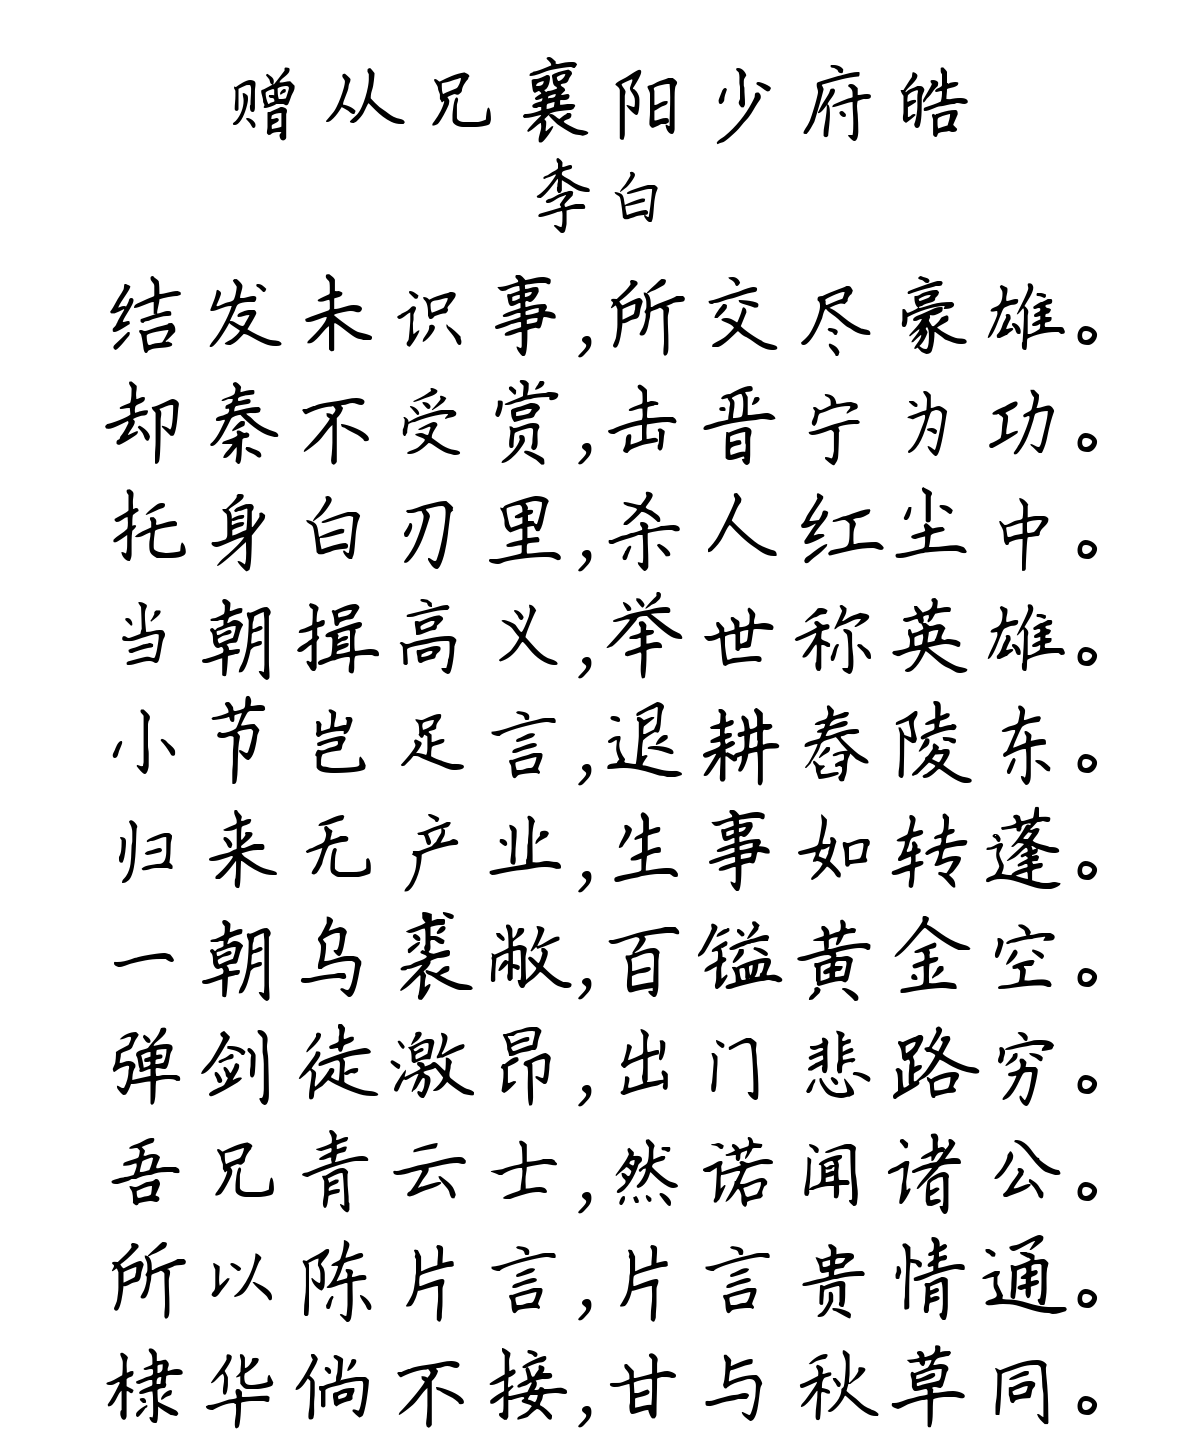 赠从兄襄阳少府皓
李白
结发未识事,所交尽豪雄。
却秦不受赏,击晋宁为功。
托身白刃里,杀人红尘中。
当朝揖高义,举世称英雄。
小节岂足言,退耕舂陵东。
归来无产业,生事如转蓬。
一朝乌裘敝,百镒黄金空。
弹剑徒激昂,出门悲路穷。
吾兄青云士,然诺闻诸公。
所以陈片言,片言贵情通。
棣华倘不接,甘与秋草同。